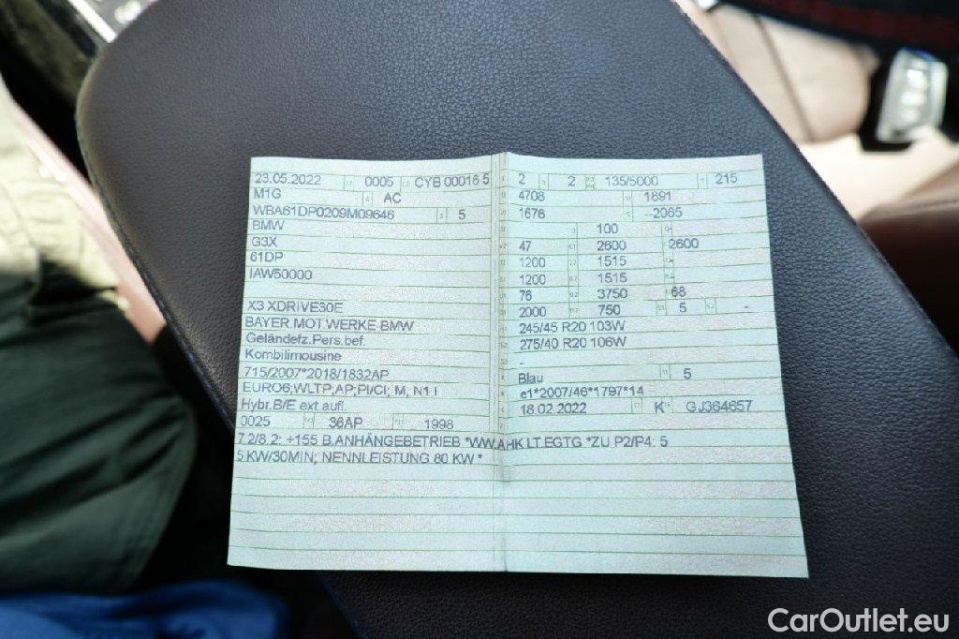 23.05.2022 0005 CYB 00016 5
M1G AC
WBA61DP0209M09646 5
BMW
G3X
61DP
IAW50000
X3 XDRIVE30E
BAYER.MOT.WERKE-BMW
Geländefz.Pers.bef.
Kombilimousine
715/2007*2018/1832AP
EURO6;WLTP;AP;PI/CI; M, N1 I
Hybr.B/E ext.aufl.
0025 36AP 1998
2 2 135/5000 215
4708 1891
1676 --2065
100
47 2600 2600
1200 1515
1200 1515
76 3750 68
2000 750 5 -
245/45 R20 103W
275/40 R20 106W
-
Blau 5
e1*2007/46*1797*14
18.02.2022 K GJ364657
7.2/8.2: +155 B.ANHÄNGEBETRIEB *WW.AHK LT.EGTG *ZU P2/P4: 5
5 KW/30MIN; NENNLEISTUNG 80 KW *
CarOutlet.eu